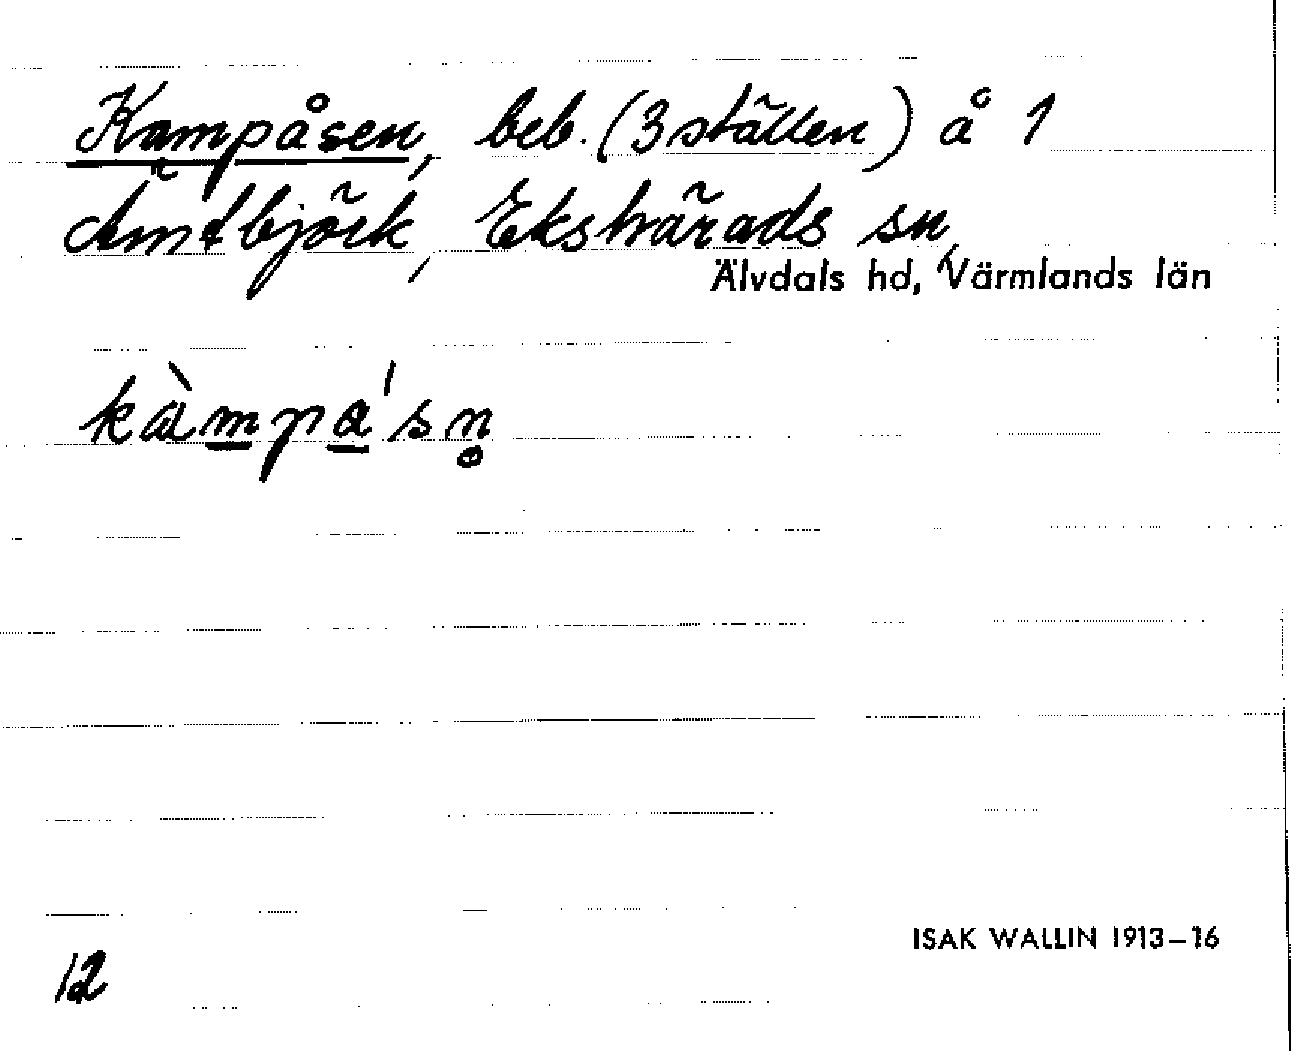 Kampåsen, beb. (3 ställen) å 1
Ämtbjörk, Ekshärads sn,
Älvdals hd, Värmlands län
kàmpa'sn̥
12
ISAK WALLIN 1913–16